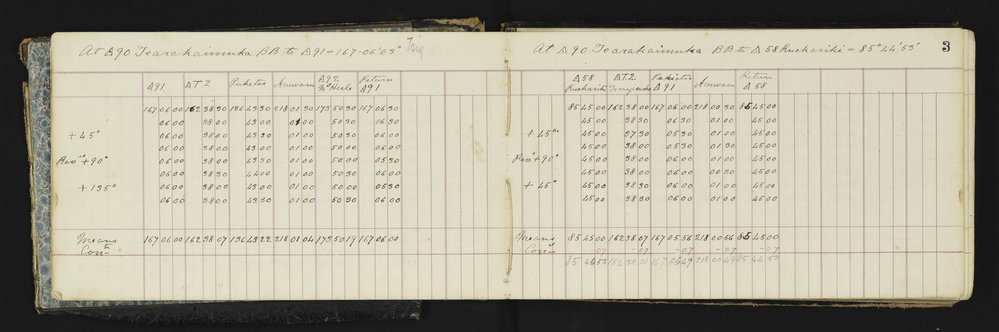 At △90 Tearahaimuka BB to △91 - 167-06'03" Trig
△91 △T.2 Puketoi Auwain △92 McHeels Return △91
167 06 00 162 38 30 136 43 30 218 01 30 173 50 30 167 06 30
06 00 38 00 43 00 01 00 50 30 06 30
+ 45° 06 00 38 00 43 30 01 00 50 30 06 00
06 00 38 00 43 00 01 00 50 00 06 00
Rev'd + 90° 06 00 38 00 43 30 01 00 50 00 05 30
06 00 38 30 44 00 01 00 50 30 06 00
+ 135° 06 00 38 00 43 00 01 00 50 00 05 30
06 00 38 00 43 30 01 00 50 30 06 00
Means 167 06 00 162 38 07 136 43 22 218 01 04 173 50 19 167 06 00
Corrn
At △90 Tearahaimuka BB to △58 Ruahariki = 85° 44' 53" 3
△58 Ruahariki △T.2. △91 Return △58
85 45 00 162 38 00 167 06 00 218 00 30 85 45 00
45 00 38 30 06 30 01 00 45 00
+ 45° 45 00 37 30 05 30 01 00 45 00
45 00 38 30 06 00 01 30 45 00
Rev'd + 90° 45 00 38 00 06 00 01 00 45 00
45 00 38 00 06 00 00 30 45 00
+ 45° 45 00 38 00 06 00 01 00 45 00
45 00 38 30 06 00 01 00 45 00
Means 85 45 00 162 38 07 167 05 56 218 00 56 85 45 00
Corrn -07 -07 -07 -07 -07
85 44 53 162 38 00 167 05 49 218 00 49 85 44 53